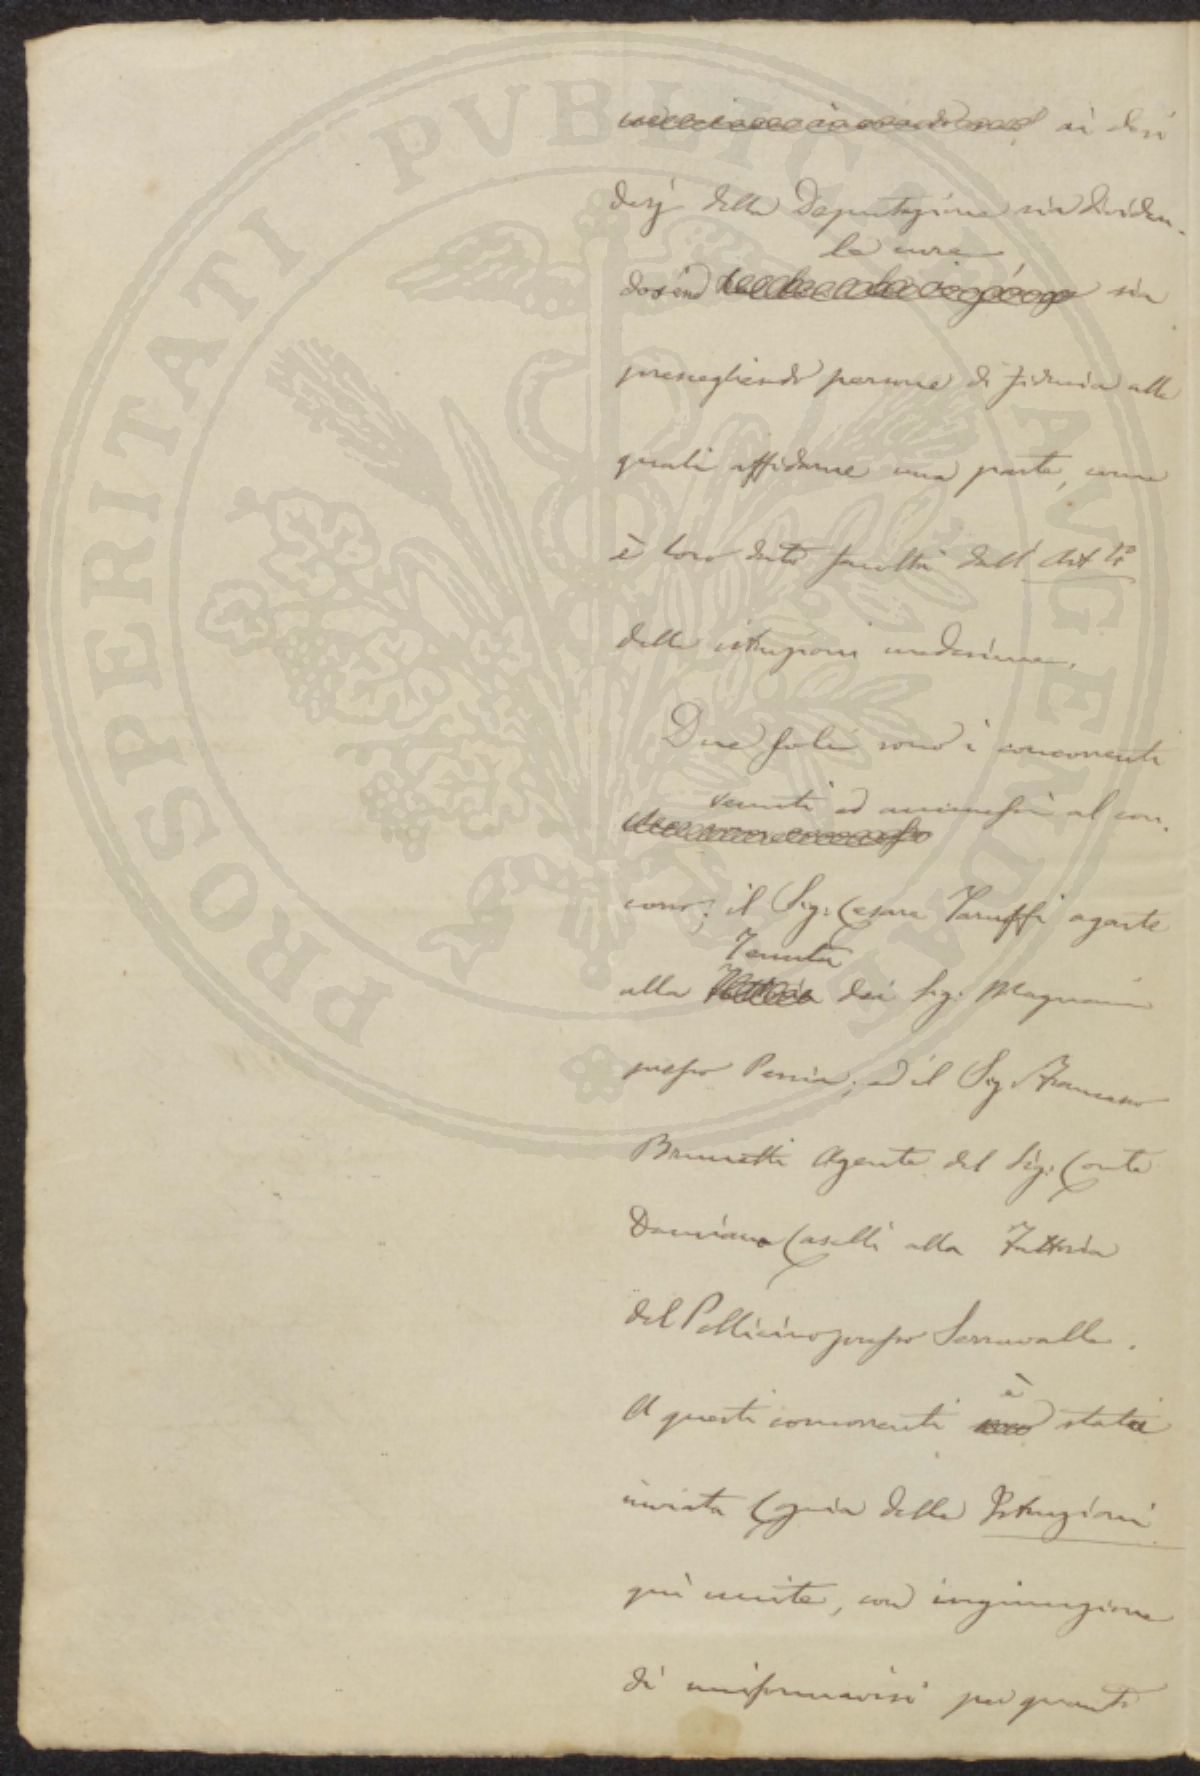 ai desi
derj della Deputazione sia dividen-
le cure
dosene sia
prescegliendo persone di fiducia alle
quali affidarne una parte, come
è loro dato facoltà dall' Art
delle istruzioni medesime.
Due soli sono i concorrenti
venuti ad ammessi al con-
corso; il Sig: Cesare Taruffi agente
Tenuta
alla dei Sig: Magnani
presso Pescia; ed il Sig. Francesco
Brunetti Agente del Sig: Conte
Damiano Caselli alla Fattoria
del Pollicino presso Serravalle.
è
A questi concorrenti stata
inviata Copia delle Istruzioni
quì unite, con ingiunzione
di uniformarsi per quanto
PROSPERITATI PVBLICAE AVGENDAE